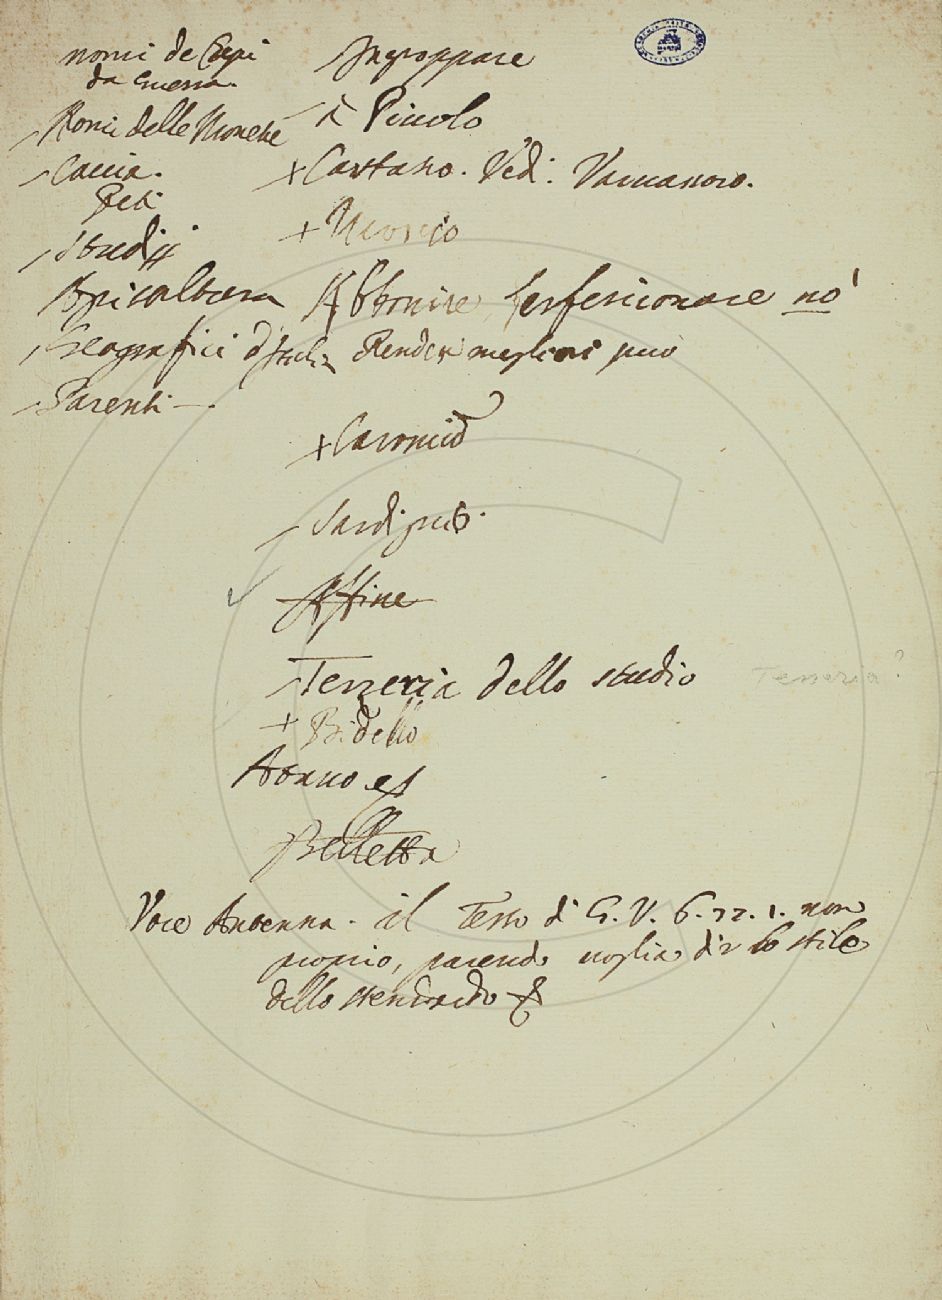 nomi de Capi
da Guerra.
Nomi delle Monete
Caccia.
Reti
Studij
Agricoltura
Geografici d'Italia
Parenti —.
Ingroppare
à Piccolo
+ Castano. Vedi.
+
Abbonire, perfezionare nò
Render migliori può
+
Affine
Terzeria dello studio
Terzeria?
+ Bidello
Abaco
Belletta
Voce Antenna. il Testo di G. V. 6. 77. 1. non
proprio, parendo voglia dir lo stile
dello stendardo